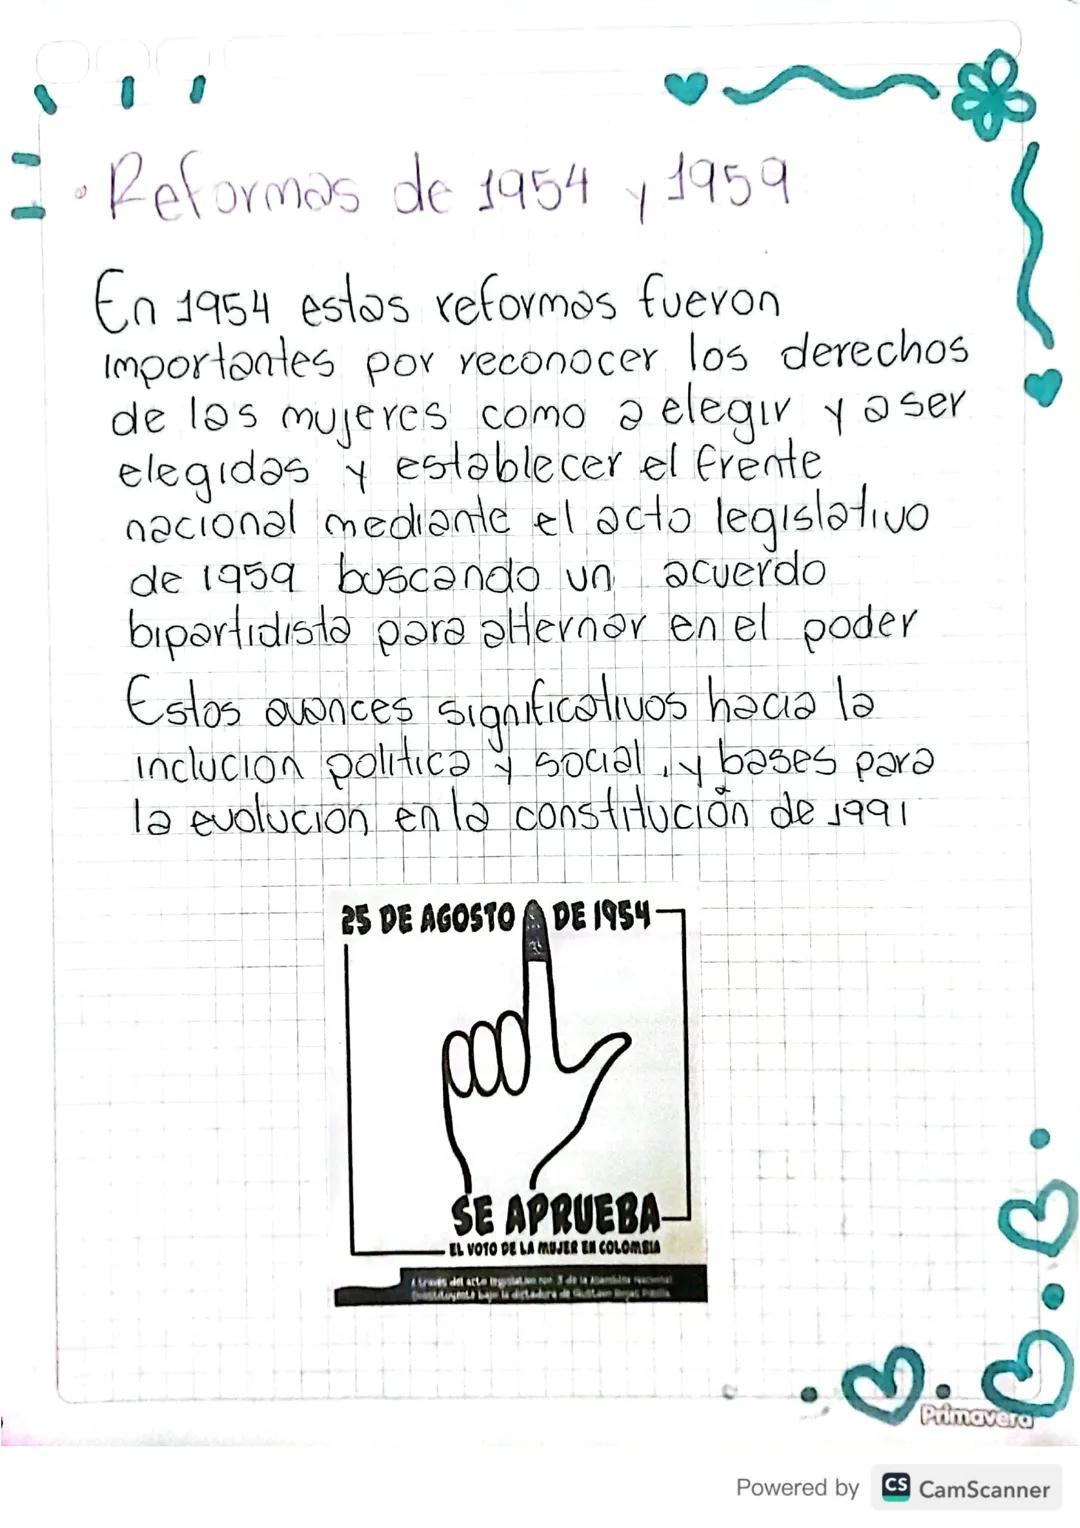 • Reformas de 1954 y 1959
En 1954 estas reformas fueron
importantes por reconocer los derechos
de las mujeres como a elegir y a ser
elegidas y establecer el frente
nacional mediante el acto legislativo
de 1959 buscando un acuerdo
bipartidista para alternar en el poder
Estos avances significativos hacia la
inclucion politica y social, y bases para
la evolucion en la constitución de 1991
25 DE AGOSTO DE 1954
SE APRUEBA
EL VOTO DE LA MUJER EN COLOMBIA
A través del acto legislativo nro. 3 de la Asamblea Nacional
Constituyente bajo la dictadura de Gustavo Rojas Pinilla
Primavera
Powered by CS CamScanner